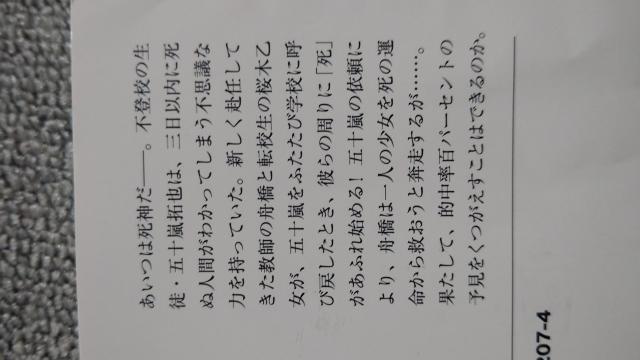 あいつは死神だ――。不登校の生
徒・五十嵐拓也は、三日以内に死
ぬ人間がわかってしまう不思議な
力を持っていた。新しく赴任して
きた教師の舟橋と転校生の桜木乙
女が、五十嵐をふたたび学校に呼
び戻したとき、彼らの周りに「死」
があふれ始める！五十嵐の依頼に
より、舟橋は一人の少女を死の運
命から救おうと奔走するが……。
果たして、的中率百パーセントの
予見をくつがえすことはできるのか。
207-4